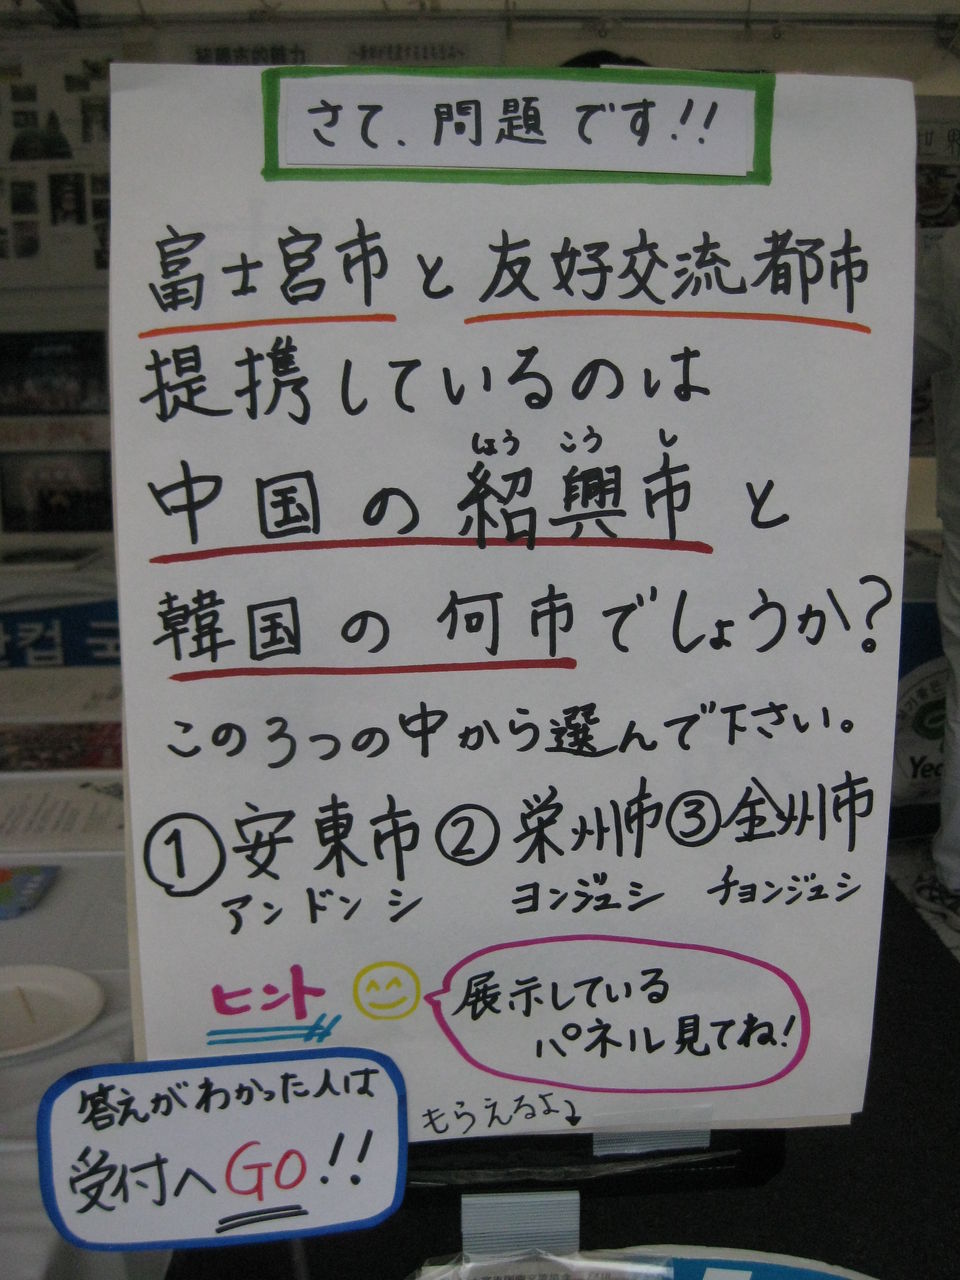 さて、問題です!!
富士宮市と友好交流都市
提携しているのは
しょう こう し
中国の紹興市と
韓国の何市でしょうか?
この3つの中から選んで下さい。
①安東市 ②栄州市 ③全州市
アンドンシ ヨンジュシ チョンジュシ
ヒント
展示している
パネル見てね!
もらえるよ
答えがわかった人は
受付へGO!!